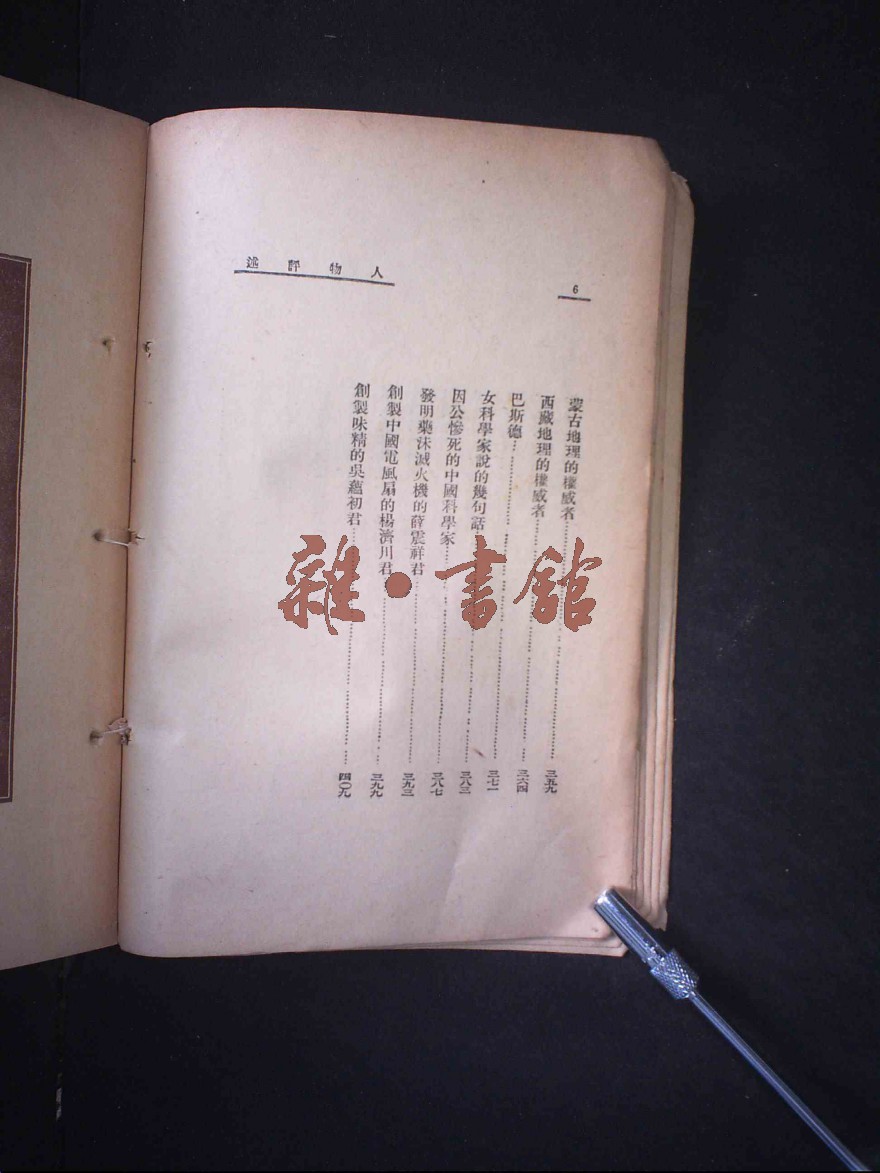 6
人物評述
蒙古地理的權威者……三五九
西藏地理的權威者……三六四
巴斯德……三七一
女科學家說的幾句話……三八三
因公慘死的中國科學家……三八七
發明藥沫滅火機的薛震祥君……三九三
創製中國電風扇的楊濟川君……三九九
創製味精的吳蘊初君……四〇九
雜•書館